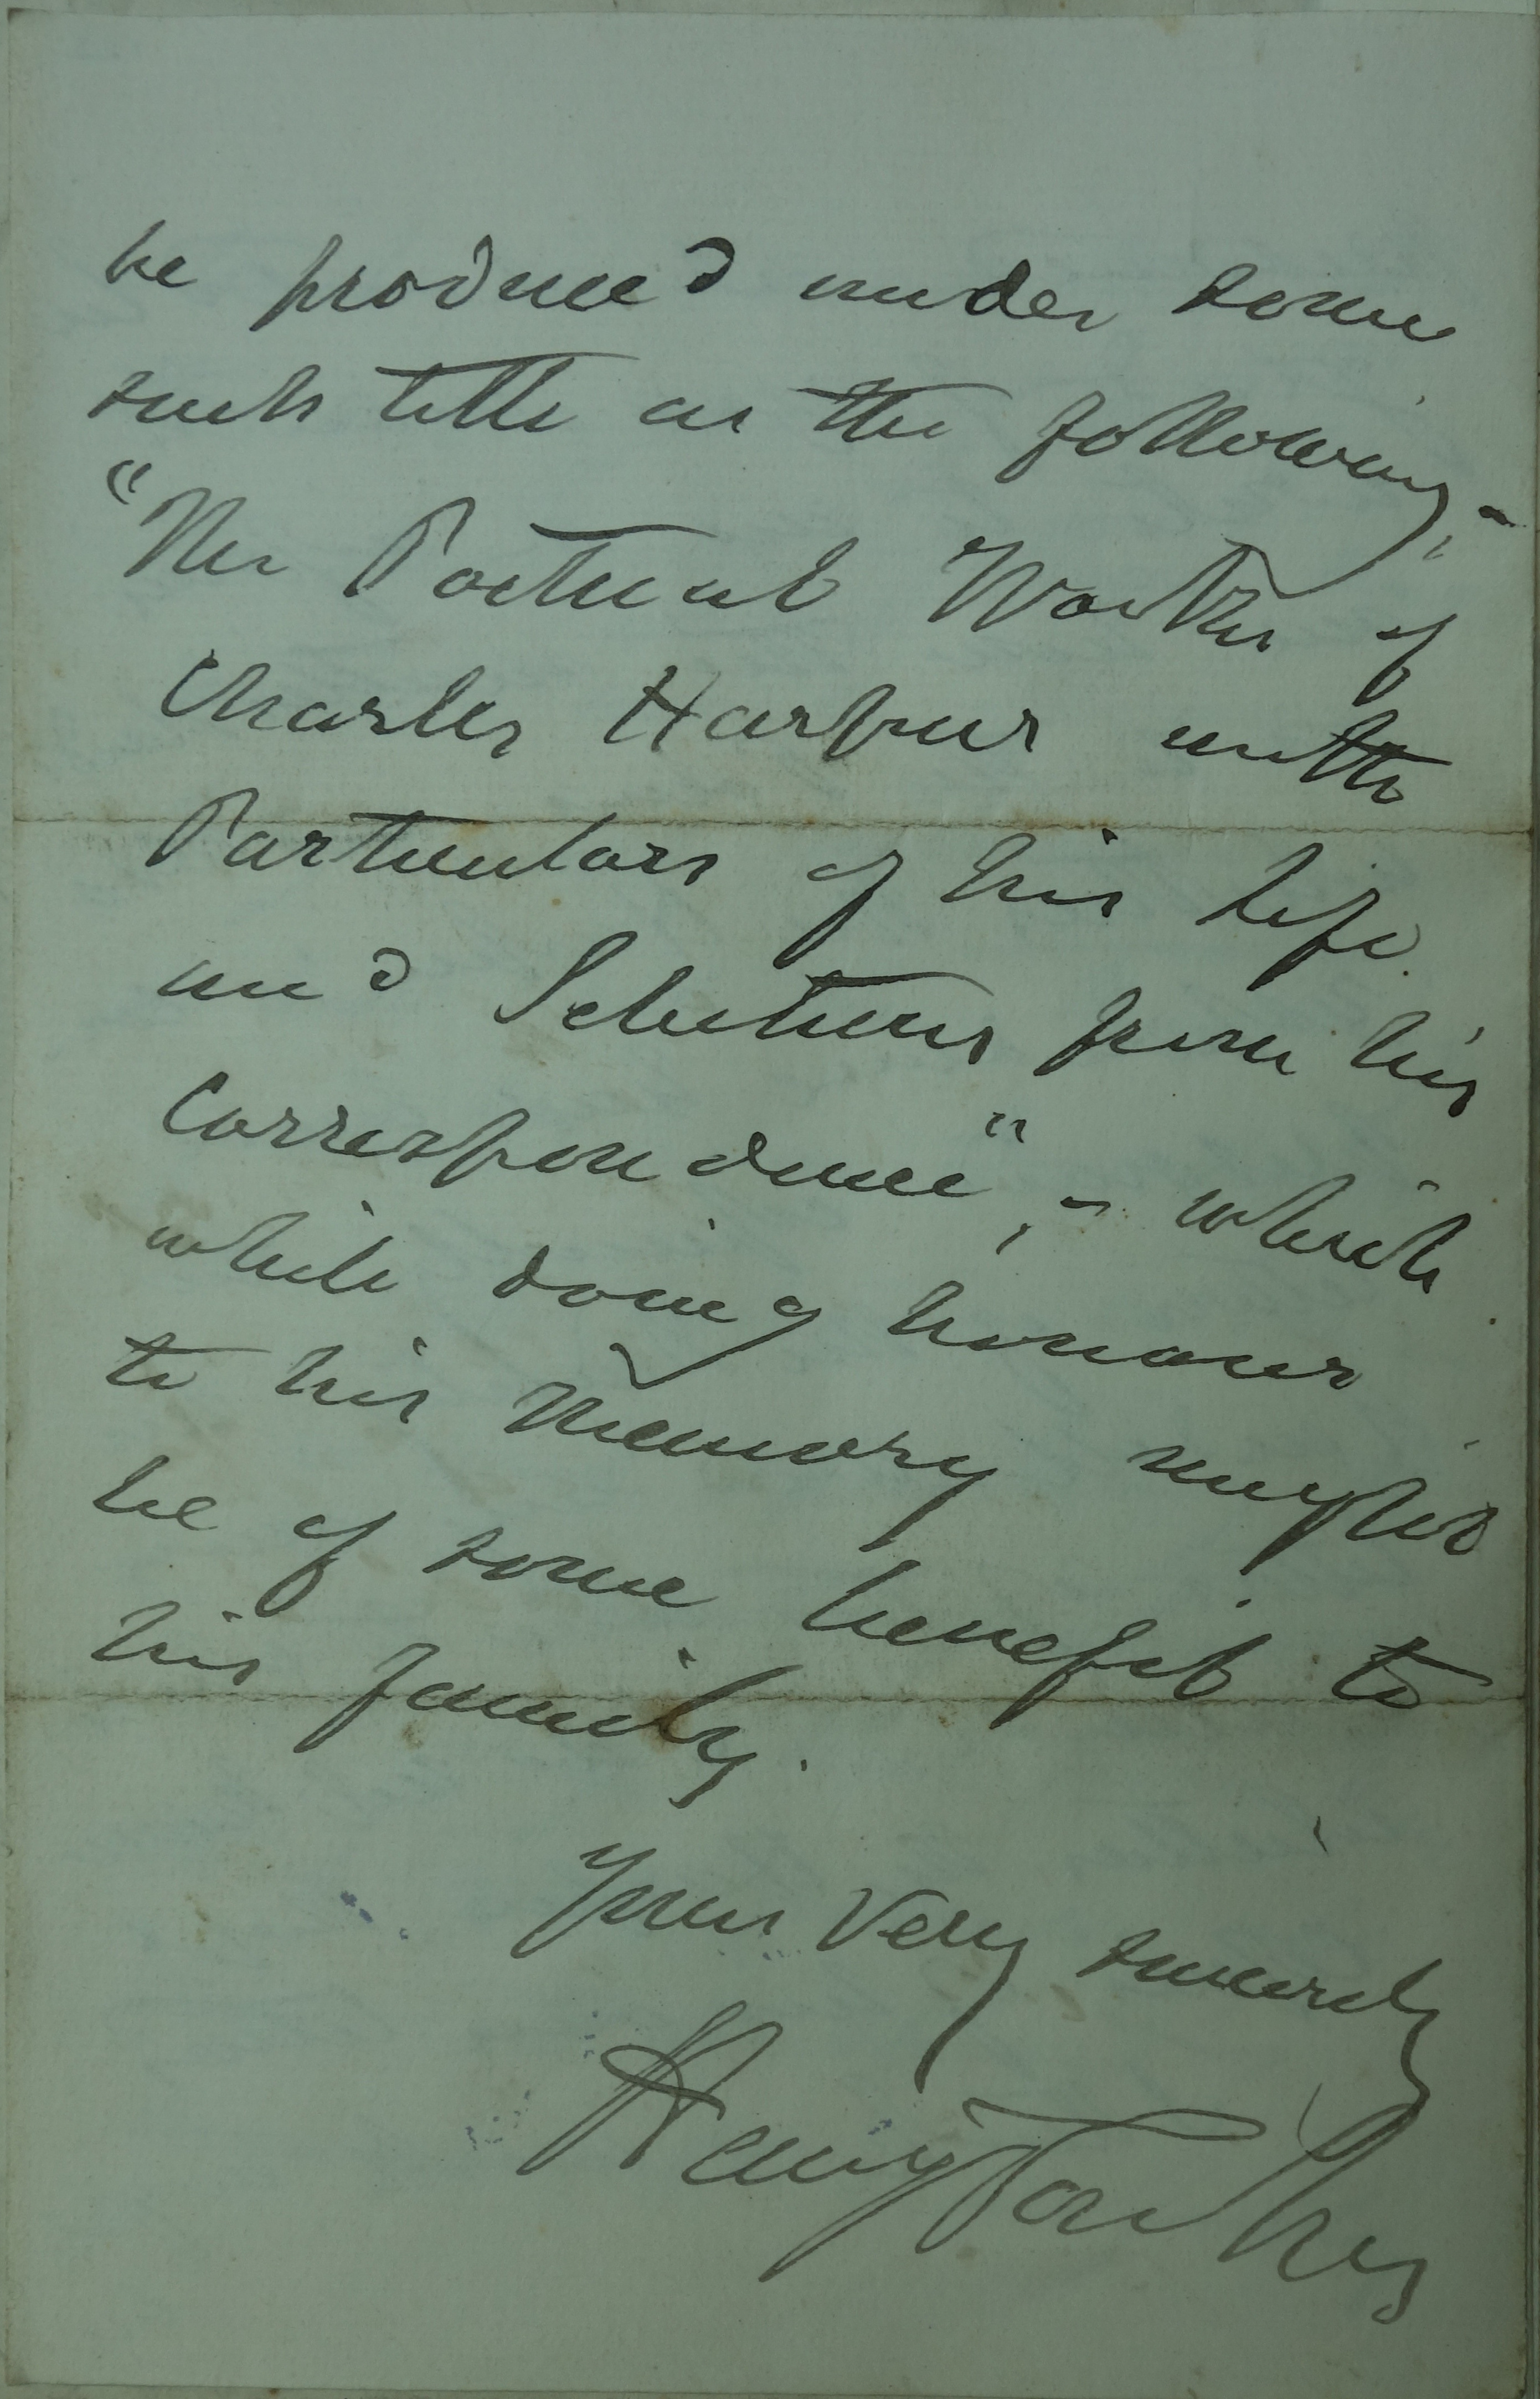 be produced under some
such title as the following:-
"The Poetical Works of
Charles Harpur with
Particulars of his life
and Selections from his
Correspondence", - which
while doing honour
to his memory might
be of some benefit to
his family.
Yours very sincerely
Henry Parkes